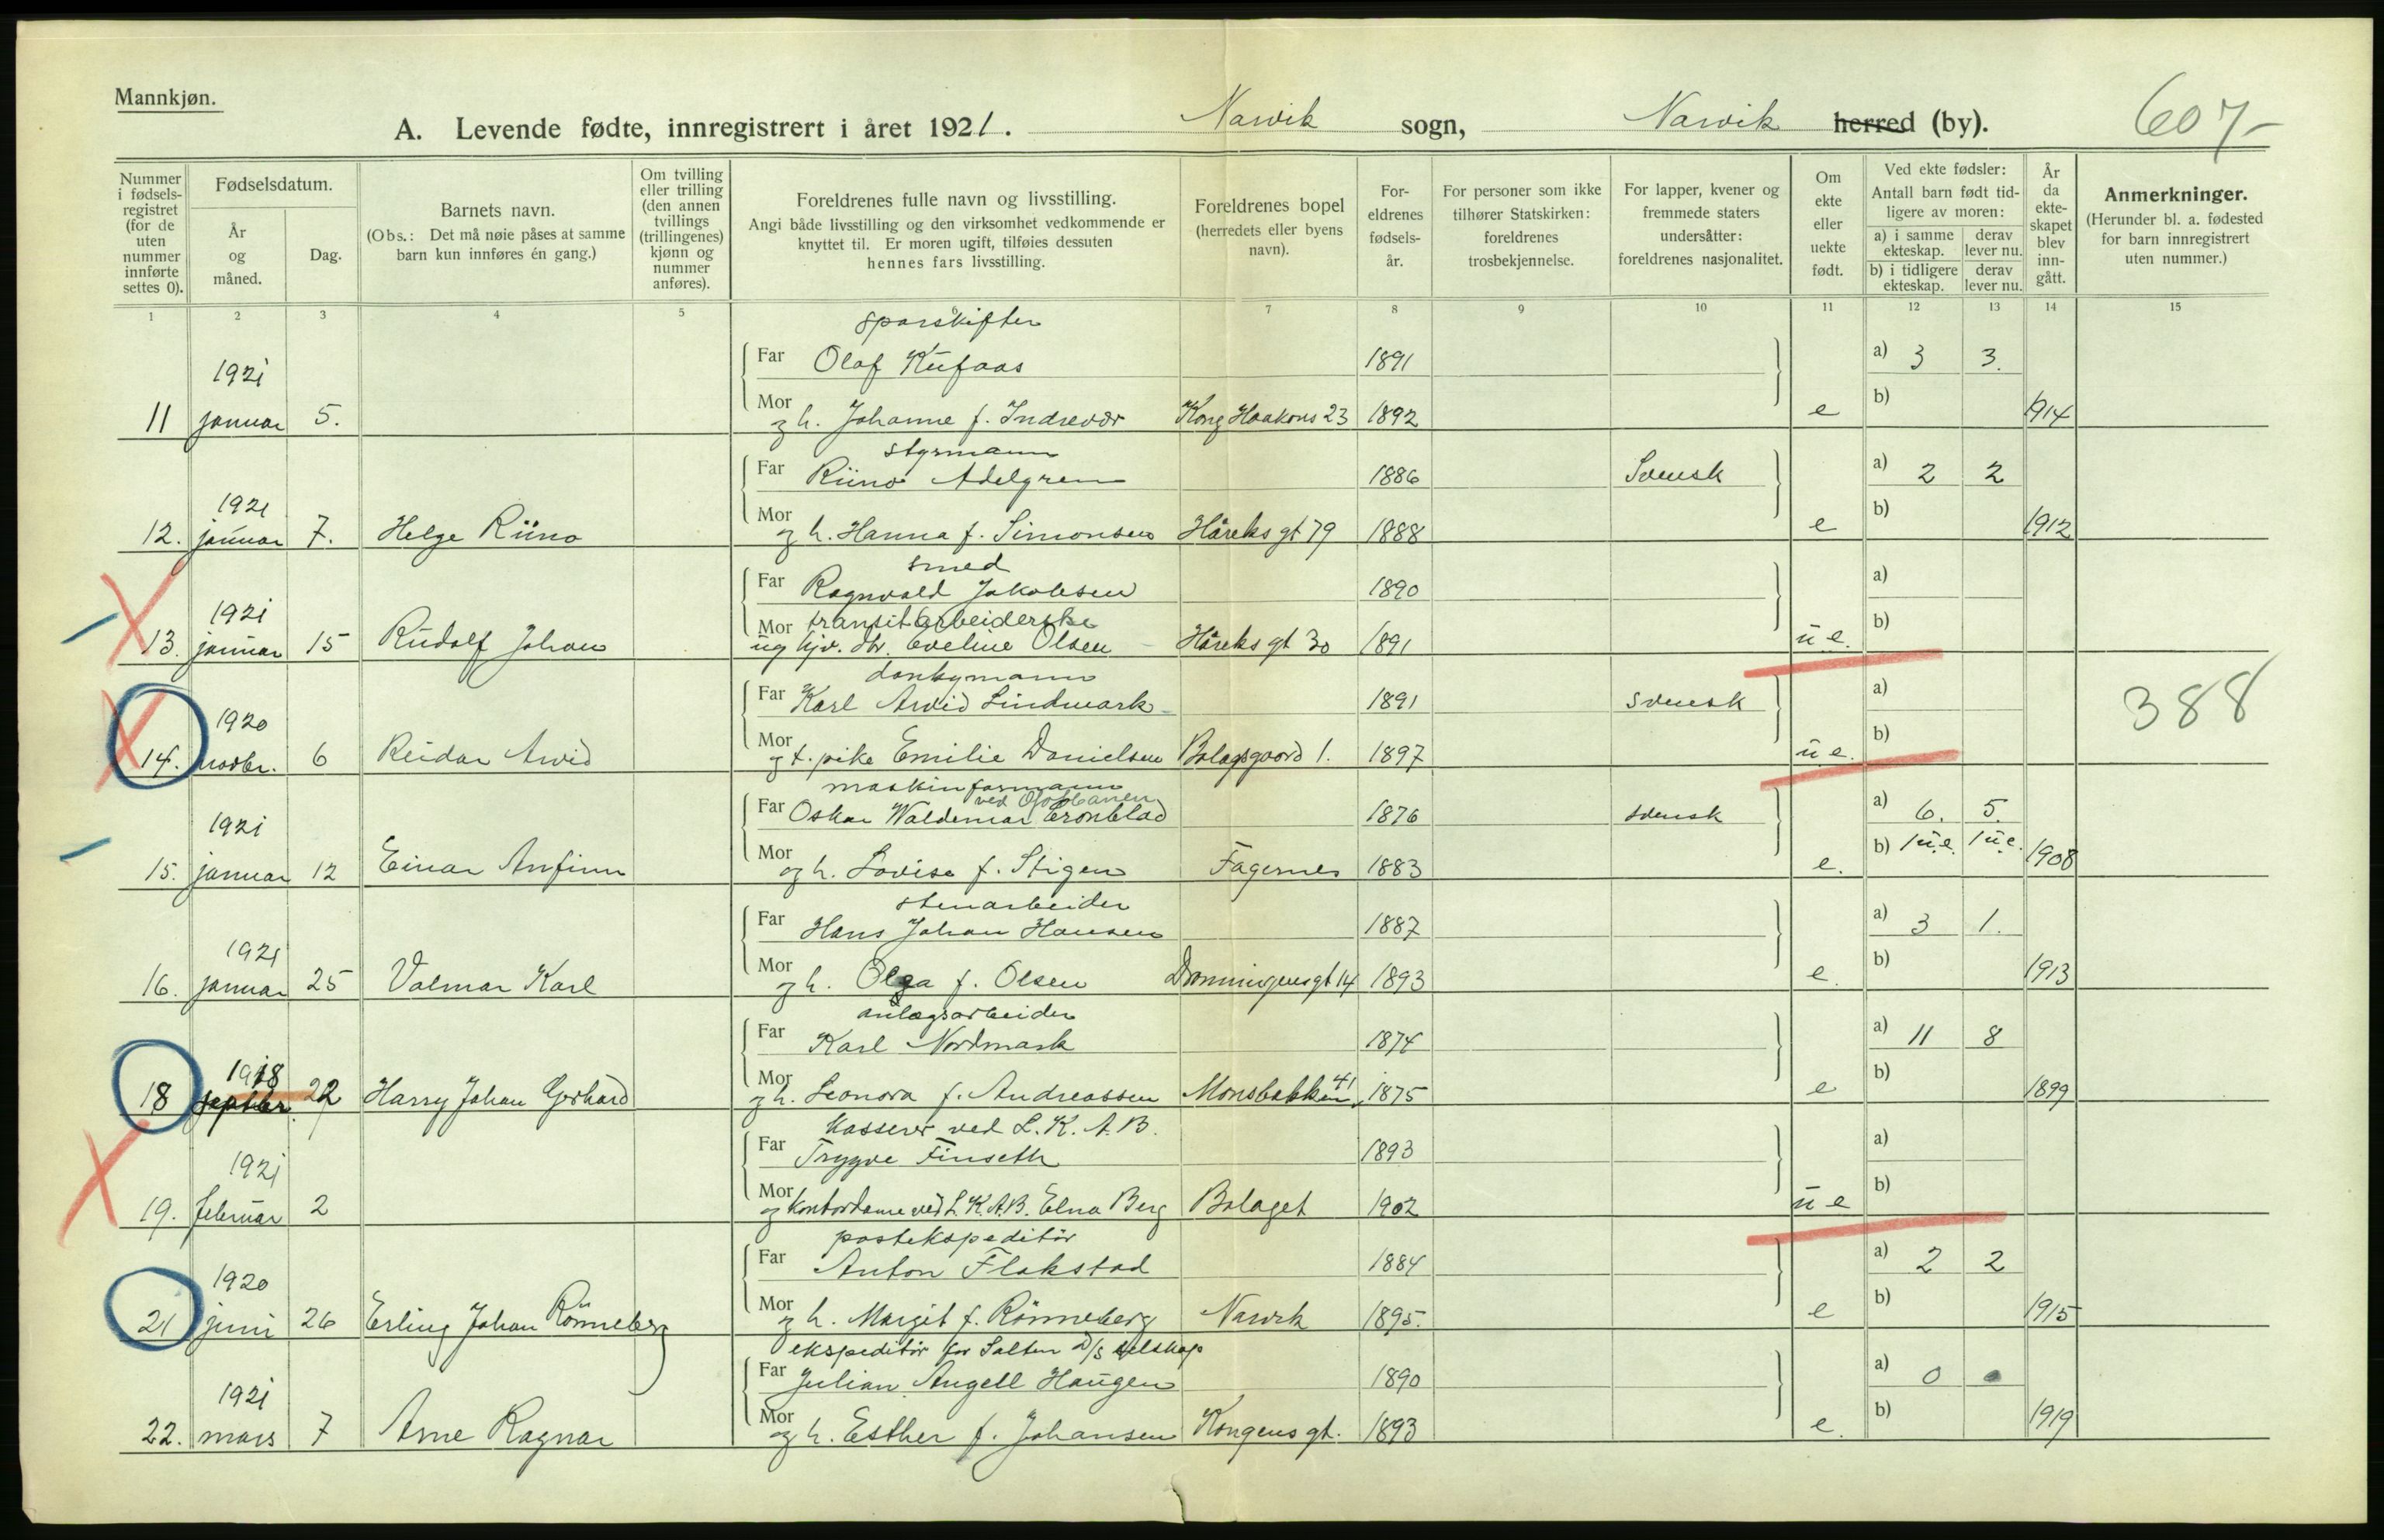 Mannkjøn.
A. Levende fødte, innregistrert i året 1921. Narvik sogn, Narvik herred (by). 607-
Nummer i fødselsregistret (for de uten nummer innførte settes 0).
Fødselsdatum.
År og måned.
Dag.
Barnets navn.
(Obs.: Det må nøie påses at samme barn kun innføres én gang.)
Om tvilling eller trilling (den annen tvillings (trillingenes) kjønn og nummer anføres).
Foreldrenes fulle navn og livsstilling.
Angi både livsstilling og den virksomhet vedkommende er knyttet til. Er moren ugift, tilføies dessuten hennes fars livsstilling.
Foreldrenes bopel (herredets eller byens navn).
Foreldrenes fødselsår.
For personer som ikke tilhører Statskirken: foreldrenes trosbekjennelse.
For lapper, kvener og fremmede staters undersåtter: foreldrenes nasjonalitet.
Om ekte eller uekte født.
Ved ekte fødsler: Antall barn født tidligere av moren:
a) i samme ekteskap. derav lever nu.
b) i tidligere ekteskap. derav lever nu.
År da ekteskapet blev inngått.
Anmerkninger.
(Herunder bl. a. fødested for barn innregistrert uten nummer.)
1 2 3 4 5 6 7 8 9 10 11 12 13 14 15
sporskifter
1921 Far Olaf Kufaas 1891 a) 3 3.
11 januar 5. Mor og h. Johanne f. Indrevær Kong Haakons 23 1892 e b) 1914
styrmann
1921 Far Runo Adelgren 1886 Svensk a) 2 2
12. januar 7. Helge Runo Mor og h. Hanna f. Simonsen Håreks gt 79 1888 e b) 1912
smed
1921 Far Ragnvald Jakobsen 1890 a)
transitarbeiderske
13. januar 15 Rudolf Johan Mor ug hjv. dtr. Eveline Olsen Håreks gt 30 1891 u e. b)
donkymann
1920 Far Karl Arvid Lindmark 1891 svensk a) 388
14. novbr. 6 Reidar Arvid Mor og t. pike Emilie Danielsen Bolagsgaard 1. 1897 u e. b)
maskinformann
ved Ofotbanen
1921 Far Oskar Waldemar Cronblad 1876 svensk a) 6. 5.
15. januar 12 Einar Anfinn Mor og h. Lovise f. Stigen Fagernes 1883 e. b) 1 u.e. 1 u.e. 1908
stenarbeider
1921 Far Hans Johan Hansen 1887 a) 3 1.
16. januar 25 Valmar Karl Mor og h. Olga f. Olsen Dronningensgt 14 1893 e. b) 1913
anlægsarbeider
1918 Far Karl Nordmark 1874 a) 11 8
18 septbr. 22 Harry Johan Gerhard Mor og h. Leonora f. Andreassen Monsbakken 41 1875 e b) 1899
kasserer ved L. K. A. B.
1921 Far Trygve Finseth 1893 a)
19. februar 2 Mor og kontordame ved L.K.A.B. Elna Berg Bolaget 1902 u e b)
postekspeditör
1920 Far Anton Flakstad 1884 a) 2 2
21 juni 26 Erling Johan Rönneberg Mor og h. Margit f. Rönneberg Narvik 1895. e b) 1915
ekspeditör for Salten D/S selskap
1921 Far Julian Angell Haugen 1890 a) 0
22. mars 7 Arne Ragnar Mor og h. Esther f. Johansen Kongens gt. 1893 e. b) 1919